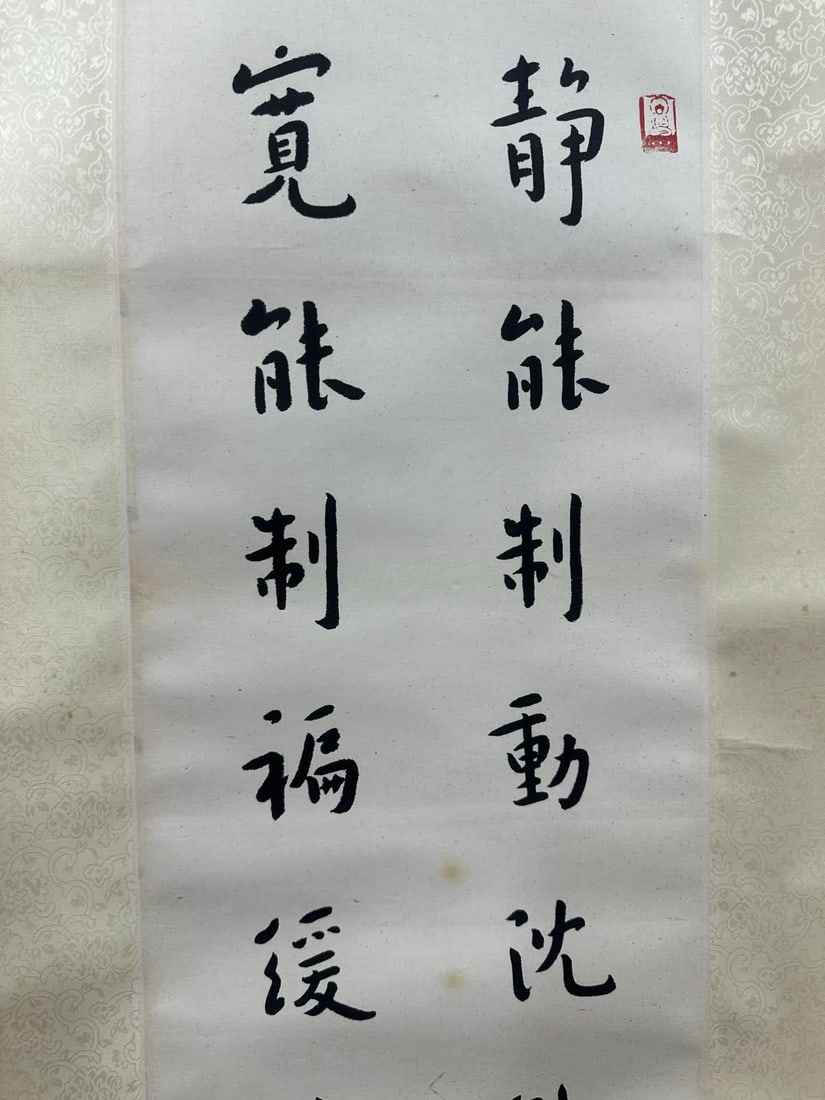 静能制動沈
寬能制褊緩